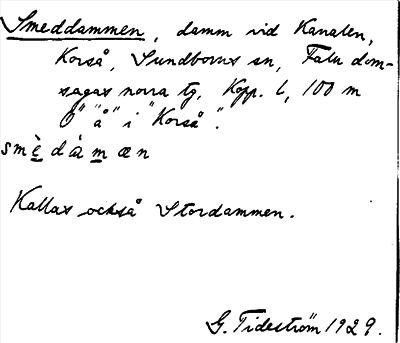 Smeddammen, damm vid Kanalen,
Korså, Sundborns sn, Falu dom-
sagas norra tg, Kopp. l, 100 m
O "å" i "Korså".
smèdàmæn
Kallas också Stordammen.
G. Tideström 1929.